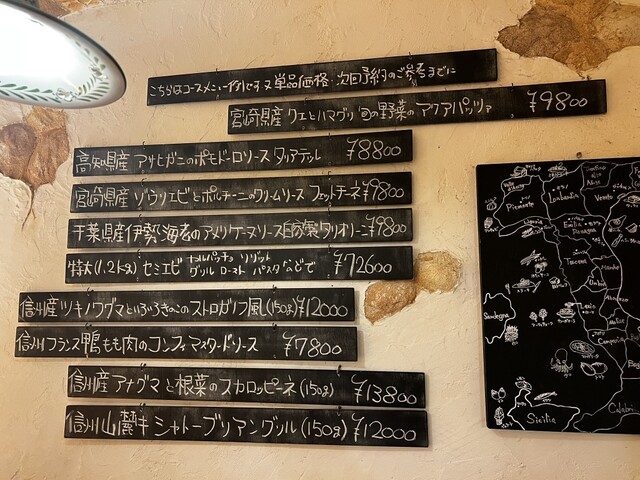 こちらはコースメニュー例です 又 単品価格 次回予約のご参考までに
宮崎県産 クエとハマグリ 旬の野菜の アクアパッツァ ¥9800
高知県産 アサヒガニのポモドーロソース タリアテッレ ¥8800
宮崎県産 ゾウリエビとポルチーニのクリームソース フェットチーネ ¥9800
千葉県産 伊勢海老のアメリケーヌソース 自家製タリオリーニ ¥9800
特大(1.2kg) セミエビ カルパッチョ リゾット
グリル ロースト パスタなどで ¥72600
信州産 ツキノワグマといぶろきのこの ストロガノフ風(150g) ¥12000
信州フランス鴨もも肉のコンフィ マスタードソース ¥7800
信州産 アナグマと根菜のスカロッピーネ(150g) ¥13800
信州山麓牛 シャトーブリアングリル(150g) ¥12000
Piemonte
Lombardia
Veneto
Liguria
Emilia
Romagna
Toscana
Umbria
Lazio
Molise
Campania
Sardegna
Sicilia